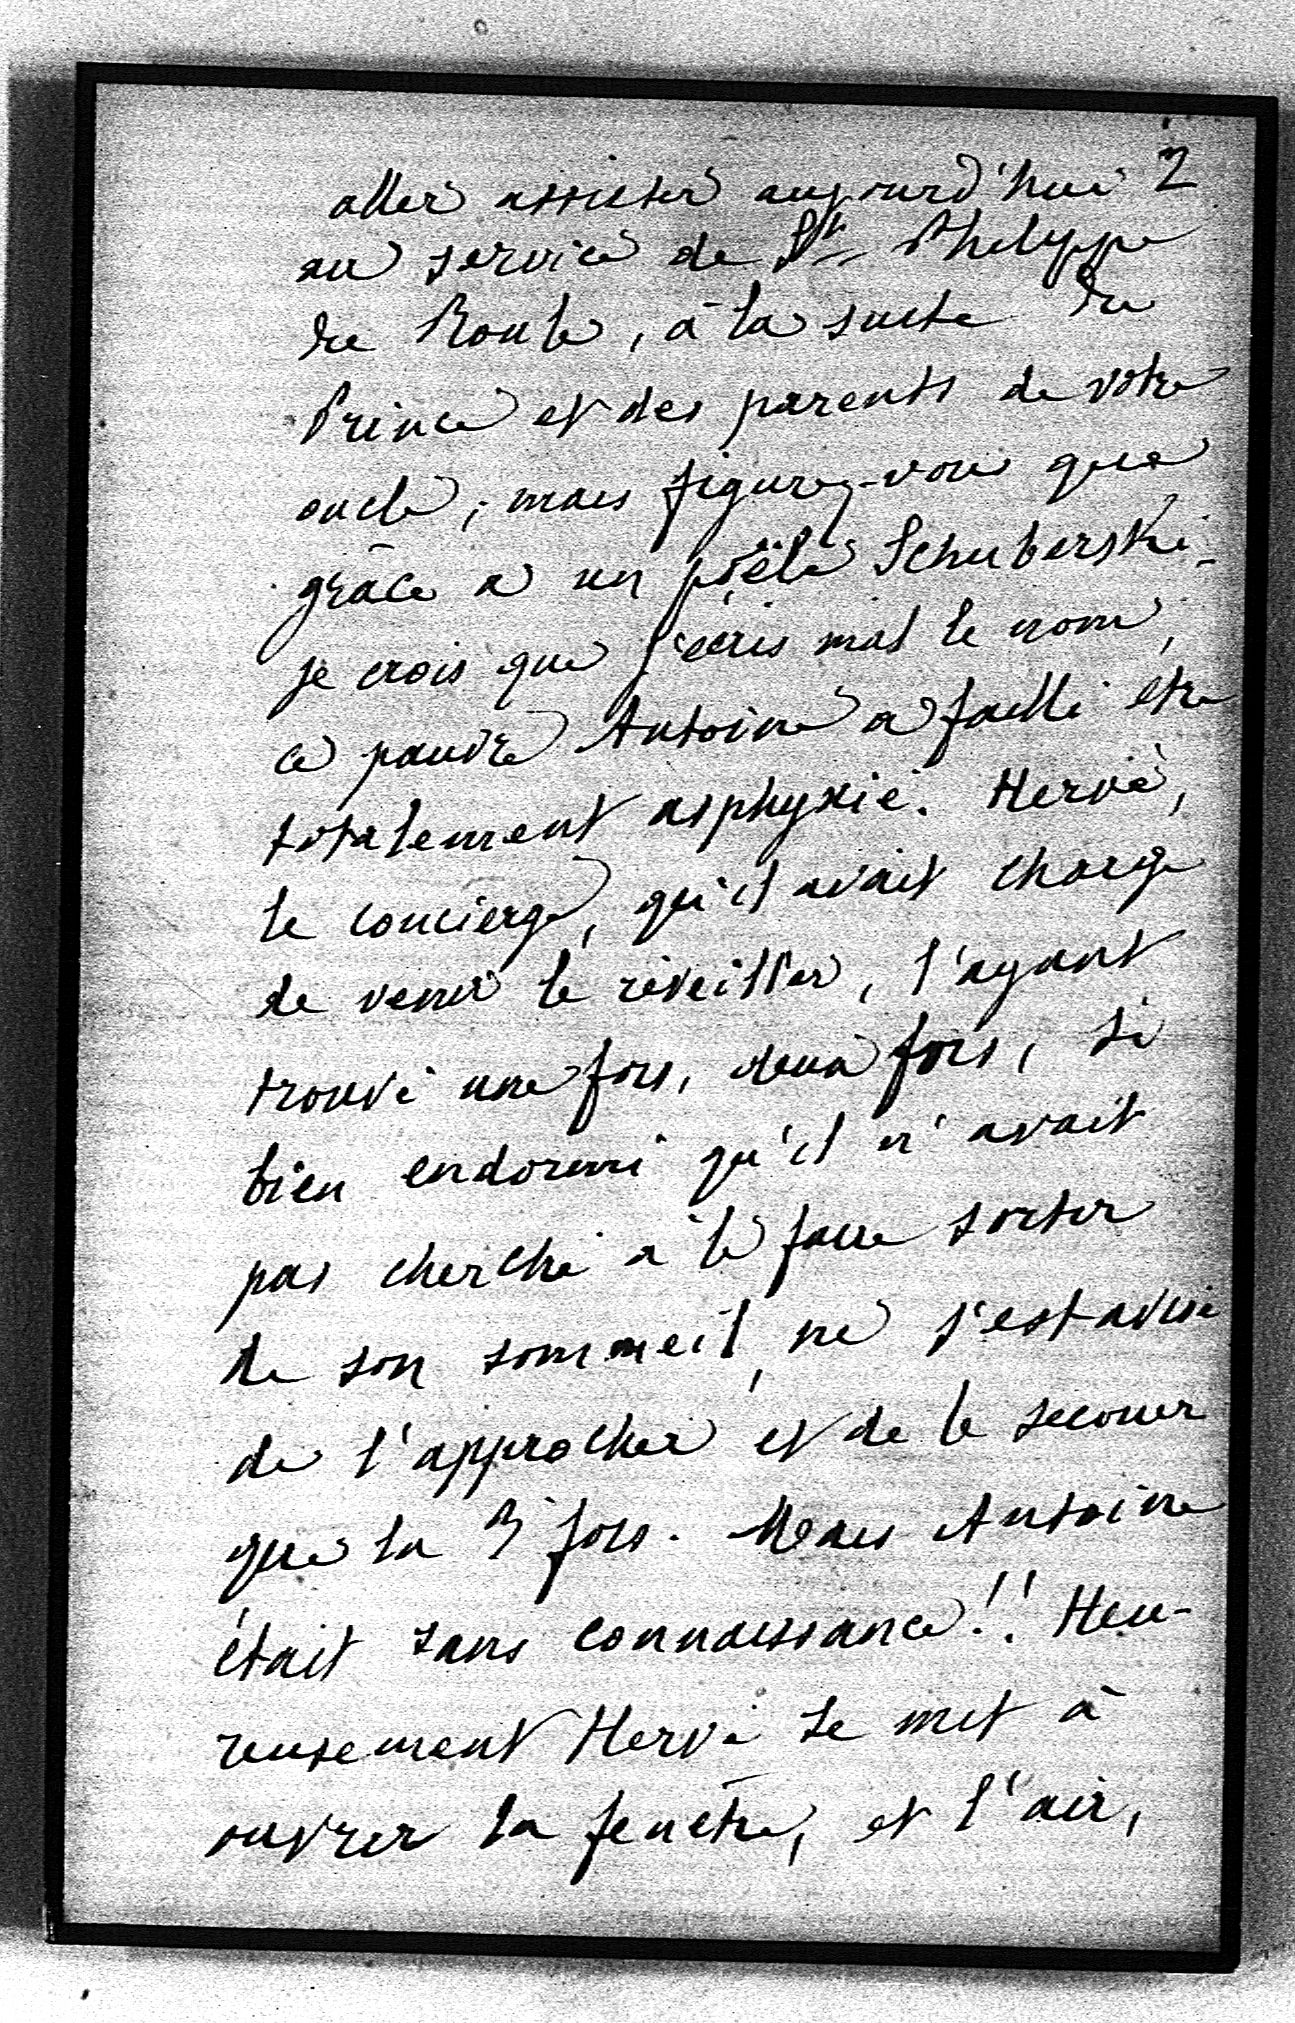 2
aller assister aujourd'hui
au service de St Philippe
du Roule, à la suite du
Prince et des parents de votre
oncle; mais figurez-vous que
grâce a un poële Schuberski -
je crois que j'écris mal le nom,
ce pauvre Antoine a failli etre
totalement asphyxié. Hervé,
le concierge, qu'il avait chargé
de venir le réveiller, l'ayant
trouvé une fois, deux fois, si
bien endormi qu'il n'avait
pas cherché à le faire sortir
de son sommeil, ne s'est avisé
de l'approcher et de le secouer
que la 3 fois. Mais Antoine
était sans connaissance!! Heu-
reusement Hervé se mit à
ouvrir la fenêtre, et l'air,